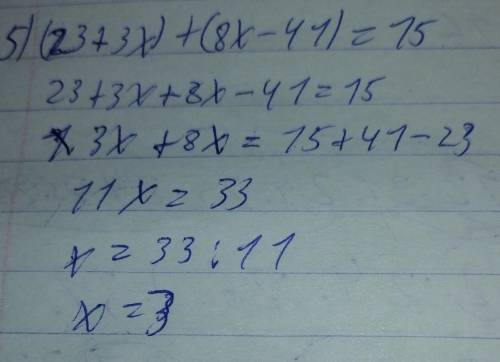 5) (23+3x)+(8x-41)=15
23+3x+8x-41=15
3x+8x=15+41-23
11x=33
x=33:11
x=3